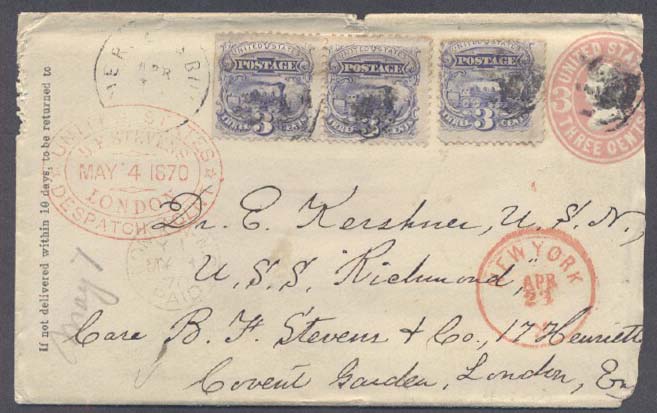 UNITED STATES
POSTAGE
3
THREE CENTS
UNITED STATES
POSTAGE
3
THREE CENTS
UNITED STATES
POSTAGE
3
THREE CENTS
UNITED STA
3
THREE CENTS
APR
If not delivered within 10 days, to be returned to
UNITED STATES
STEVENS
MAY 4 1870
LONDON
DESPATCH AGENT
PAID
May 7
NEW YORK
APR
23
Dr. E. Kershner, U.S.N.,
U.S.S. "Richmond,"
Care B. F. Stevens & Co., 17 Henriett
Covent Garden, London, En